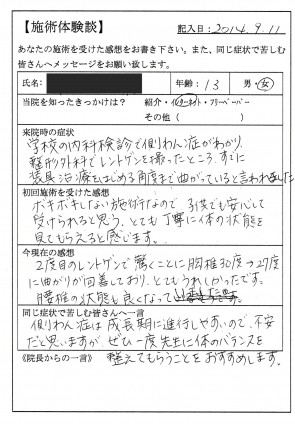 【施術体験談】 記入日：2014.9.11
あなたの施術を受けた感想をお書き下さい。また、同じ症状で苦しむ
皆さんへメッセージをお願い致します。
氏名: 年齢：13 男・女
当院を知ったきっかけは？ 紹介・インターネット・フリーペーパー
その他（ ）
来院時の症状
学校の内科検診で側わん症がわかり
整形外科でレントゲンを撮ったところ、すでに
装具治療をはじめる角度まで曲がっていると言われました
初回施術を受けた感想
ボキボキしない施術なので、子供でも安心して
受けられると思う。とても丁寧に体の状態を
見てもらえると感じます。
今現在の感想
2度目のレントゲンで驚くことに胸椎30度→27度
に曲がりが回善しており、とてもうれしかったです。
腰椎の状態も良くなって
同じ症状で苦しむ皆さんへ一言
側わん症は成長期に進行しやすいので、不安
だと思いますが、ぜひ一度先生に体のバランスを
《院長からの一言》 整えてもらうことをおすすめします。